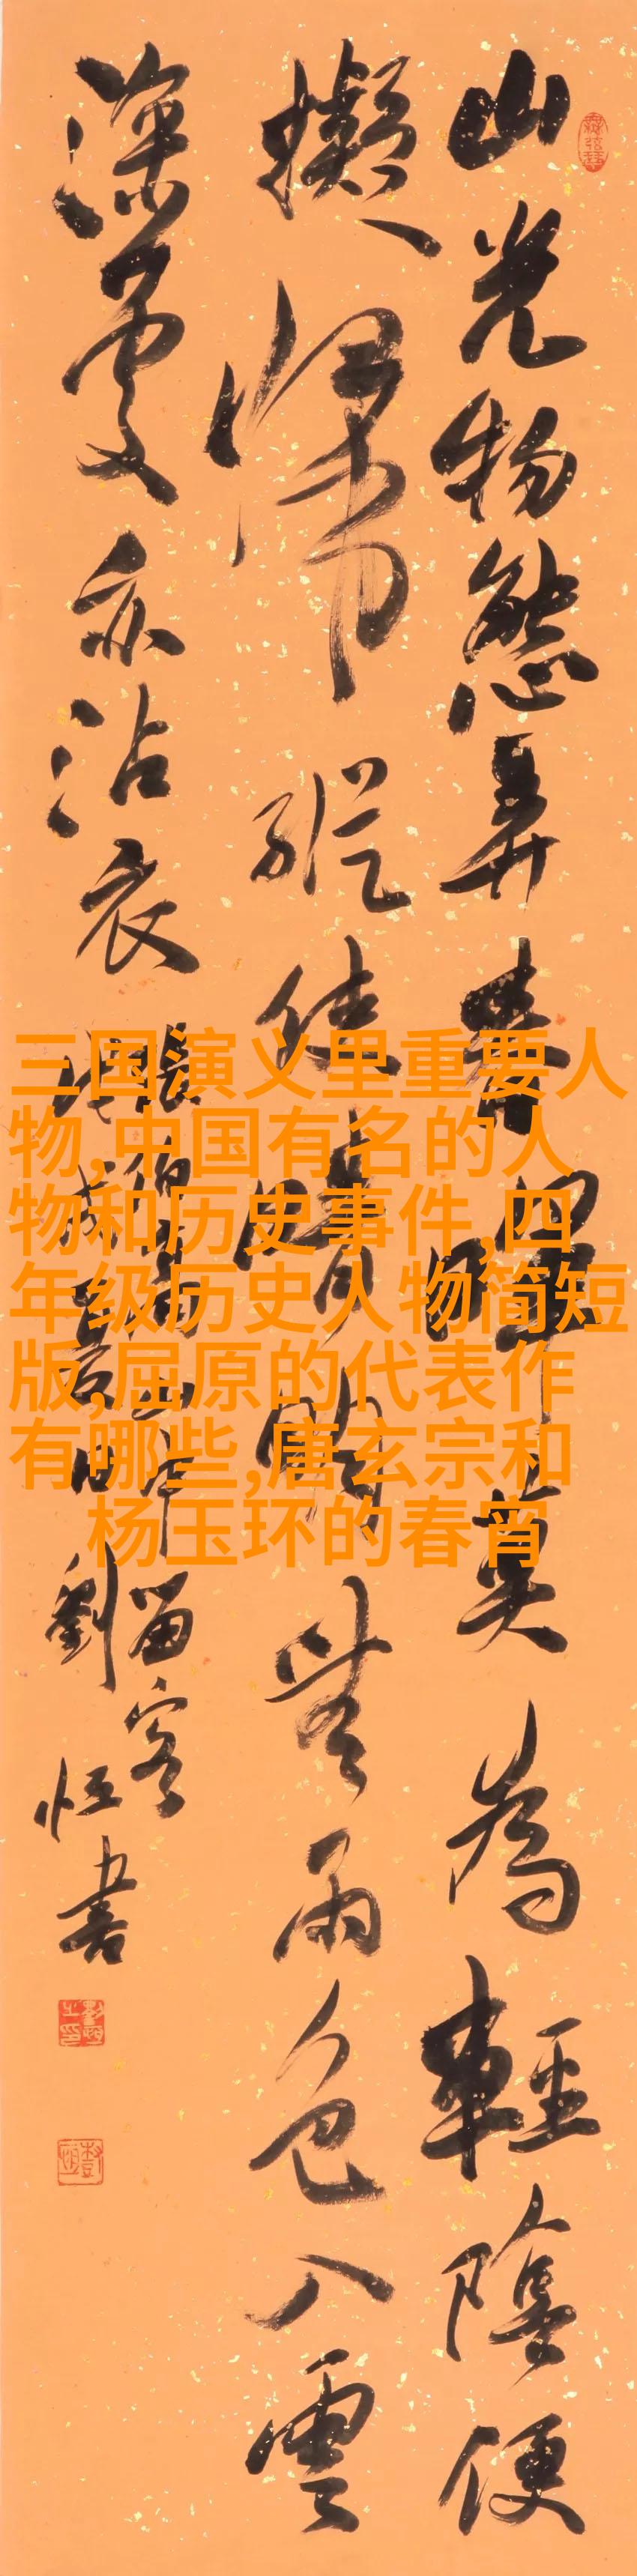 山光物態弄春暉莫為輕陰便
擬歸縱使晴明無雨色入雲
深處亦沾衣
張伯高山中留客
劉恒書
三国演义里重要人
物,中国有名的人
物和历史事件,四
年级历史人物简短
版,屈原的代表作
有哪些,唐玄宗和
杨玉环的春宵